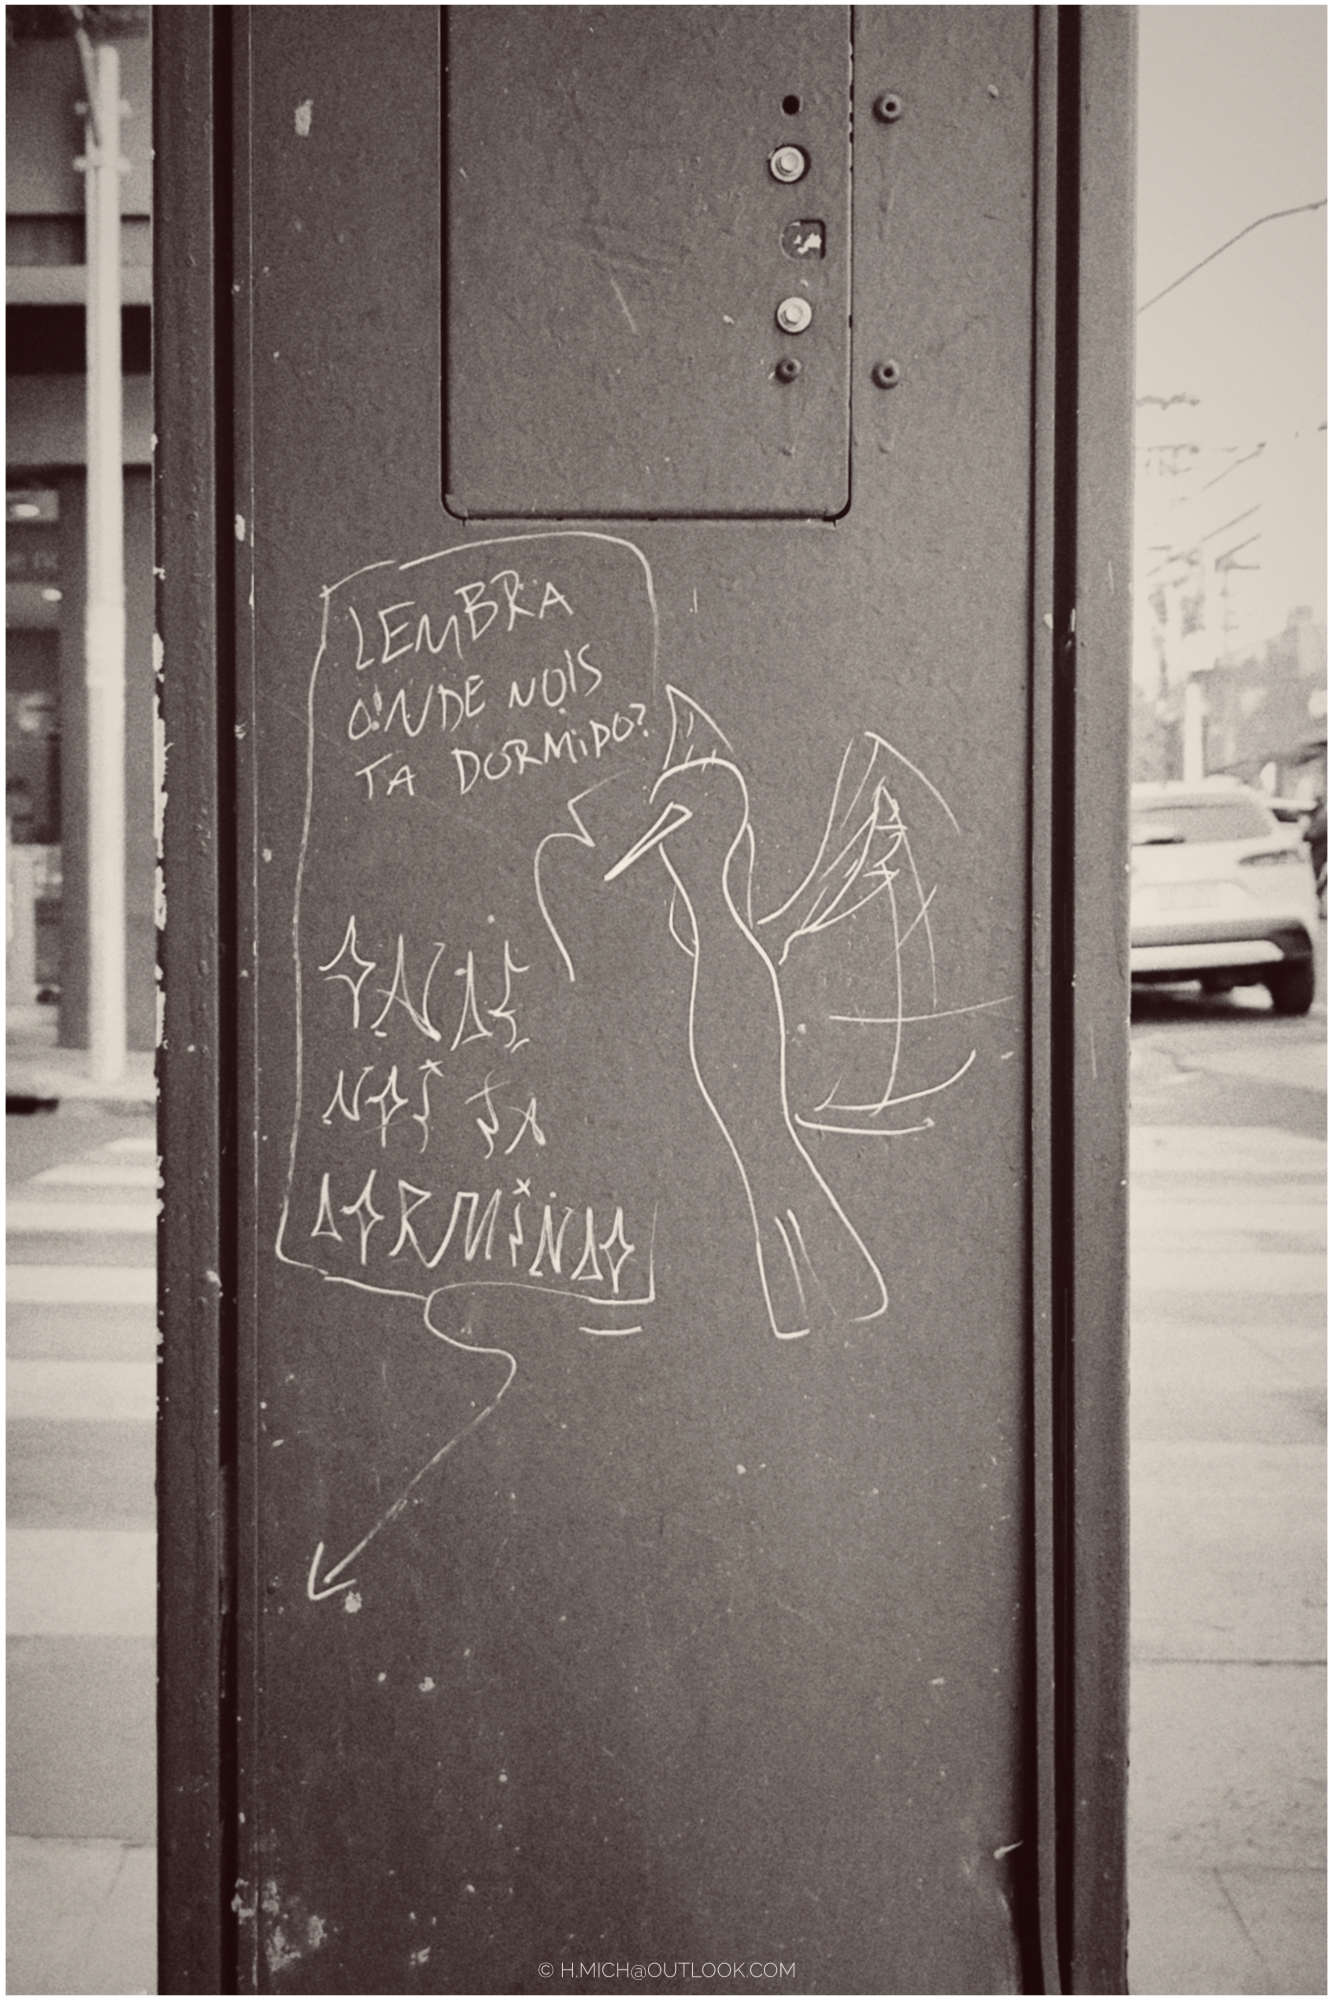 LEMBRA
ONDE NOIS
TA DORMIDO?
NOI TA
DORMINDO
© H.MICH@OUTLOOK.COM